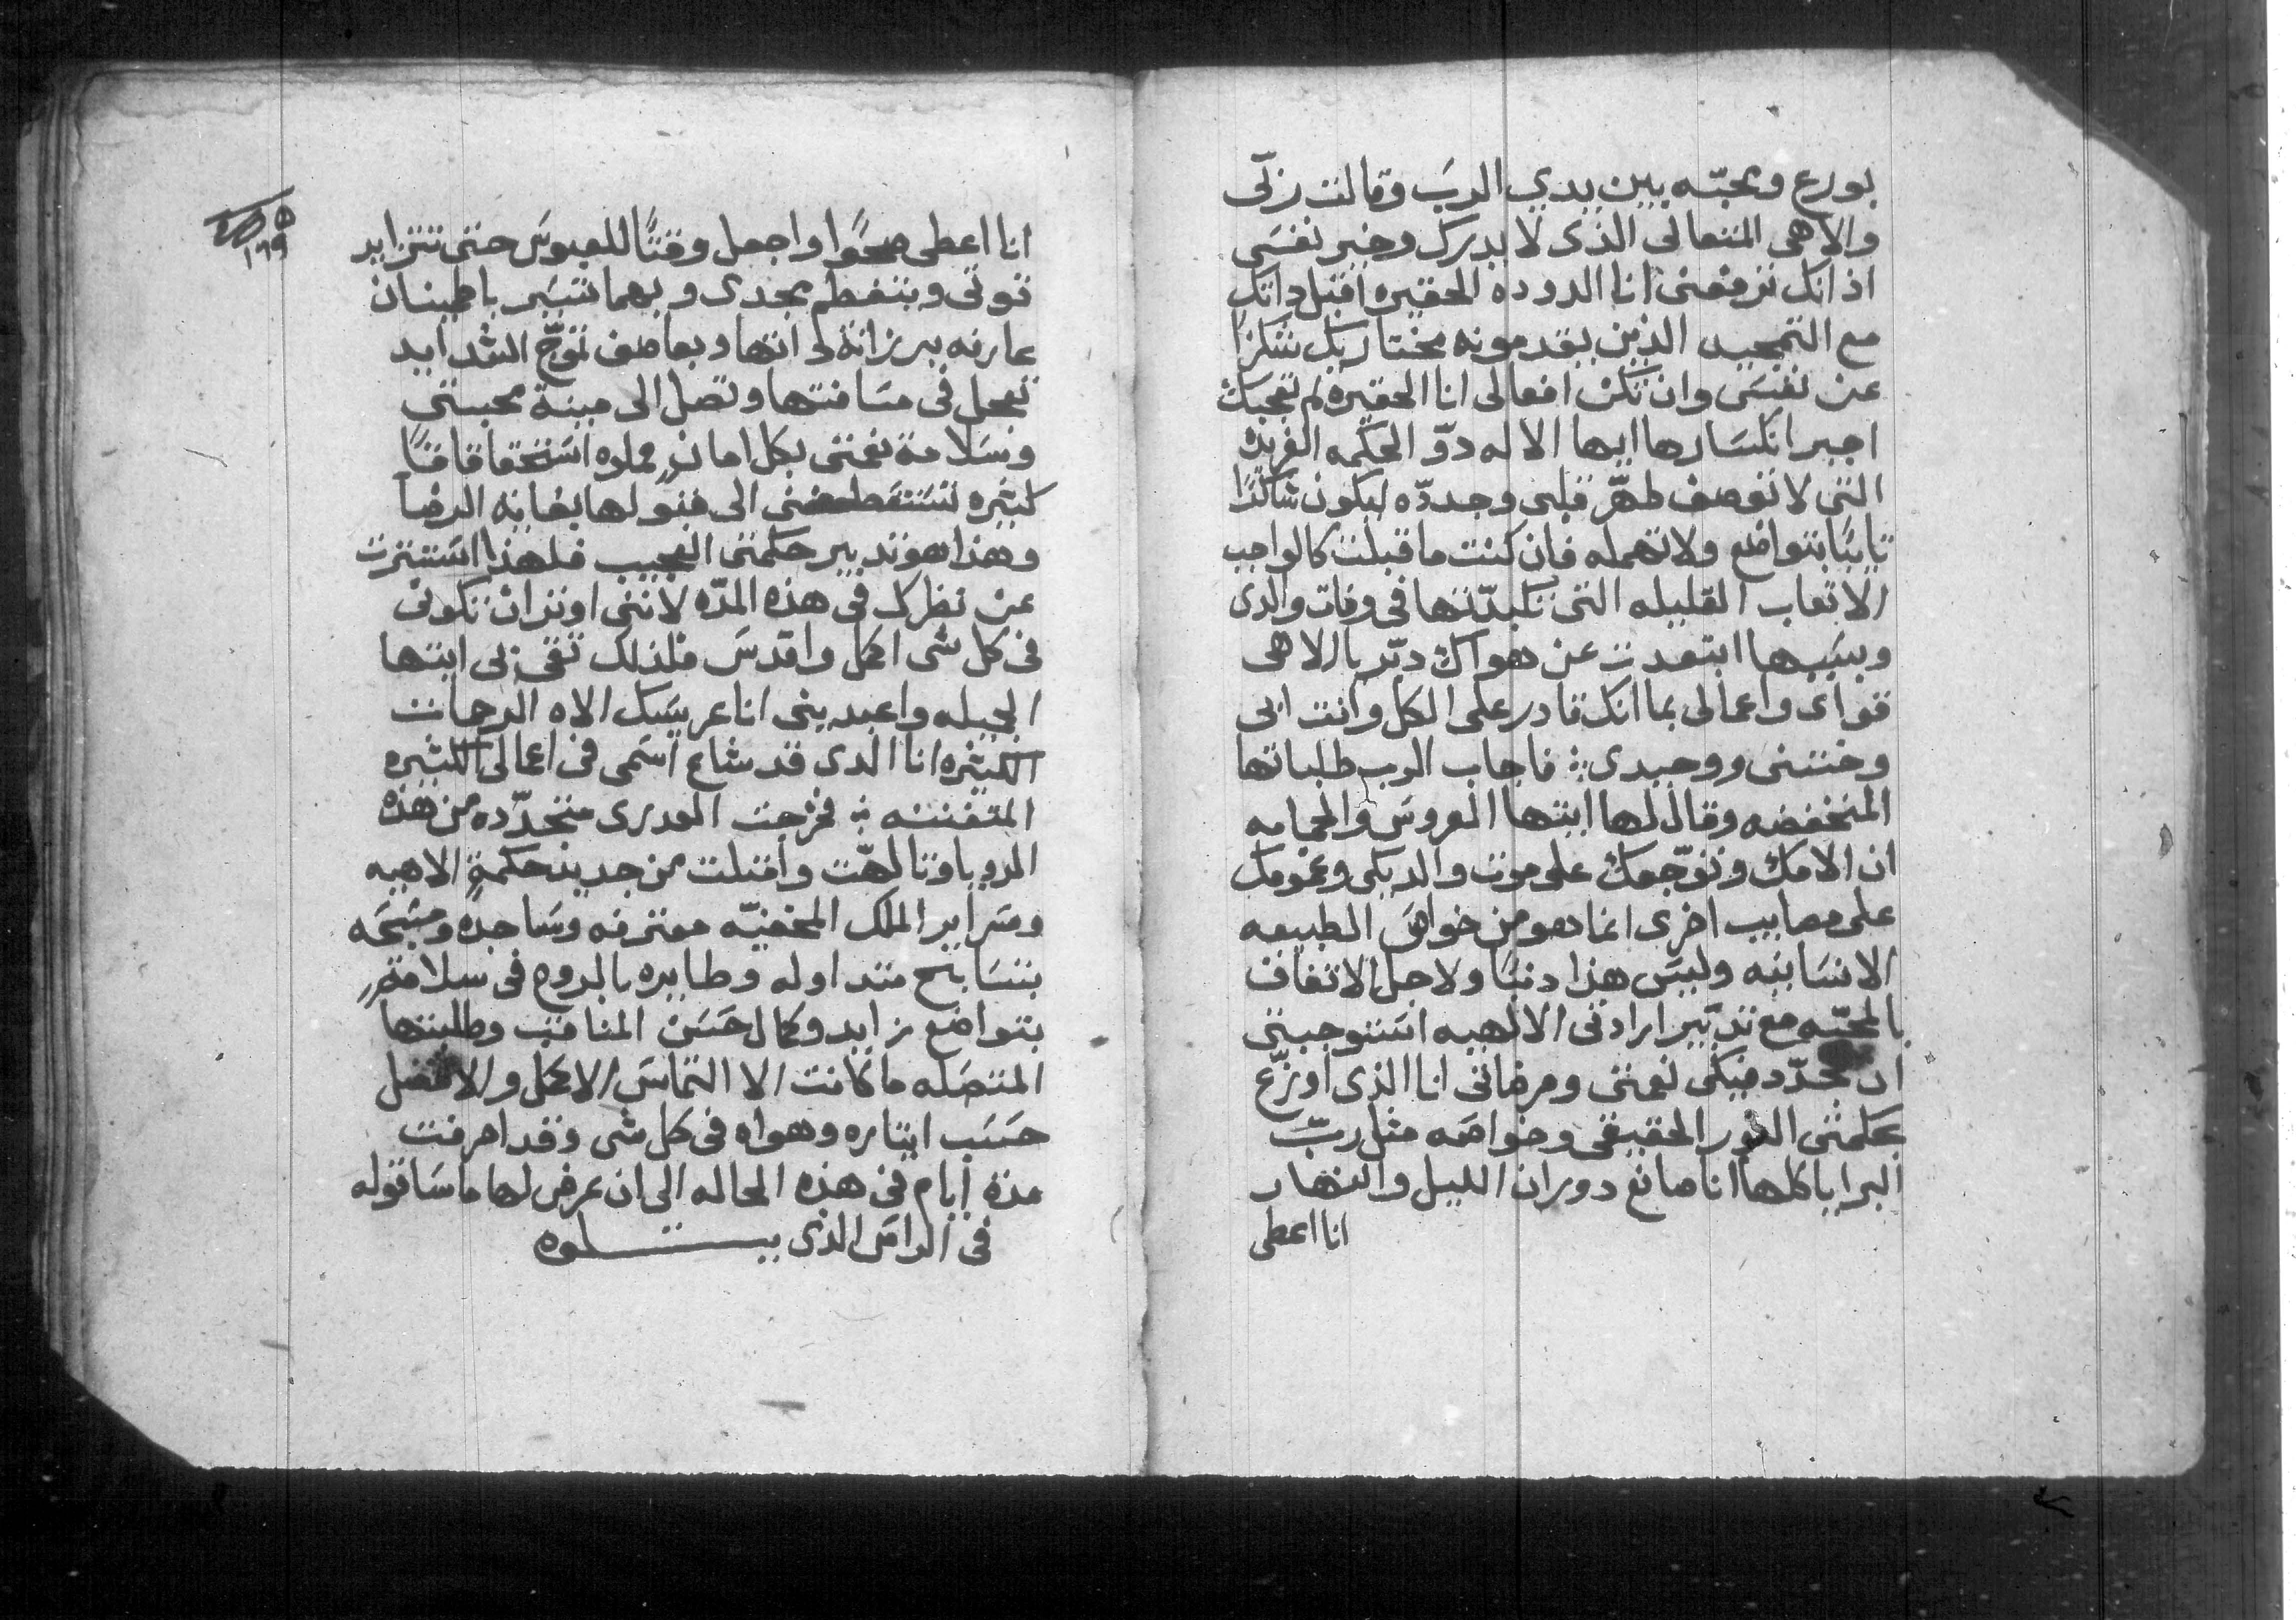 بورع ومحبّه بين يدي الربّ وقالت ربّى
والاهى المتعالى الذى لا يدرك وخير نفسى
اذ انك ترفعنى انا الدوده الحقيره اقبل داتك
مع التمجيد الذين يقدمونه مختاريك شكرًا
عن نفسى وان تكن افعالى انا الحقيره لم تعجبك
اجبر انكسارها ايها الاله دوّ الحكمه الغريزه
التى لا توصف طهّر قلبى وجددّه ليكون شاكرًا
تايبًا بتواضع ولا تهمله فان كنت ما قبلت كالواجب
الاتعاب القليله التى تكبدّتها فى وفات والدى
وبسببها ابتعدت عن هواك دبّر يا الاهى
قواى واعمالى بما انك قادر على الكل وانت ابى
وختنى ووحيدى فاجاب الرب طلباتها
المنخفضه وقال لها ايتها العروس والحمامه
ان الامك وتوّجعك على موت والديكى وغمومك
على مصايب اخرى انما هو من خواصّ الطبيعه
الانسانيه وليس هذا دنبًا ولاجل الاتفاق
بالمحبّه مع تدبّير ارادتى الالهيه استوجبتى
ان تجدّد فيكى نعمتى ومرضاتى انا الذى اوزّع
بحكمتى النور الحقيقى وخواصه مثل ربّ
البرايا كلها انا صانع دوران الليل والنهار
انا اعطى
١٩٩
انا اعطى صحوًا واجعل وقتًا للعبوس حتى تتزايد
قوتى ويتعظم مجدى وبهما تسير باطمينان
عارفه برزانة لداتها وبعاصف تموّج الشدايد
تعجل فى مسافتها وتصل الى مينة محبتى
وسلامة نعمتى بكل امان مملوه استحقاقاتًا
كثيره تستعطفنى الى قبولها بغاية الرضا
وهذا هو تدبير حكمتى العجيب فلهذا استترت
عن نظرك فى هذه المدّه لاننى اوثر ان تكونى
فى كل شى اكمل واقدس فلذلك ثقى بى ايتها
الجميله واعبدينى انا عريسك الاه الرحمات
الكثيره انا الدى قد شاع اسمى فى اعمالى الكثيره
المتفننه فخرجت العدرى متجدّده من هذه
الرويا وتالهّت واقتبلت من جديد حكمةٍ الاهيه
وسراير الملك المخفيّه معترفه وساجده ومسّبحه
بتسابيح متداوله وطايره بالروح فى سلامةٍ
بتواضع زايد وكمال حسن المناقب وطلبتها
المتصله ما كانت الا التماس الاكمل والافضل
حسب ايتاره وهواه فى كل شى وقد اصرفت
مدة ايام فى هذه الحاله الى ان عرض لها ما ساقوله
فى الراس الذى يتلوه